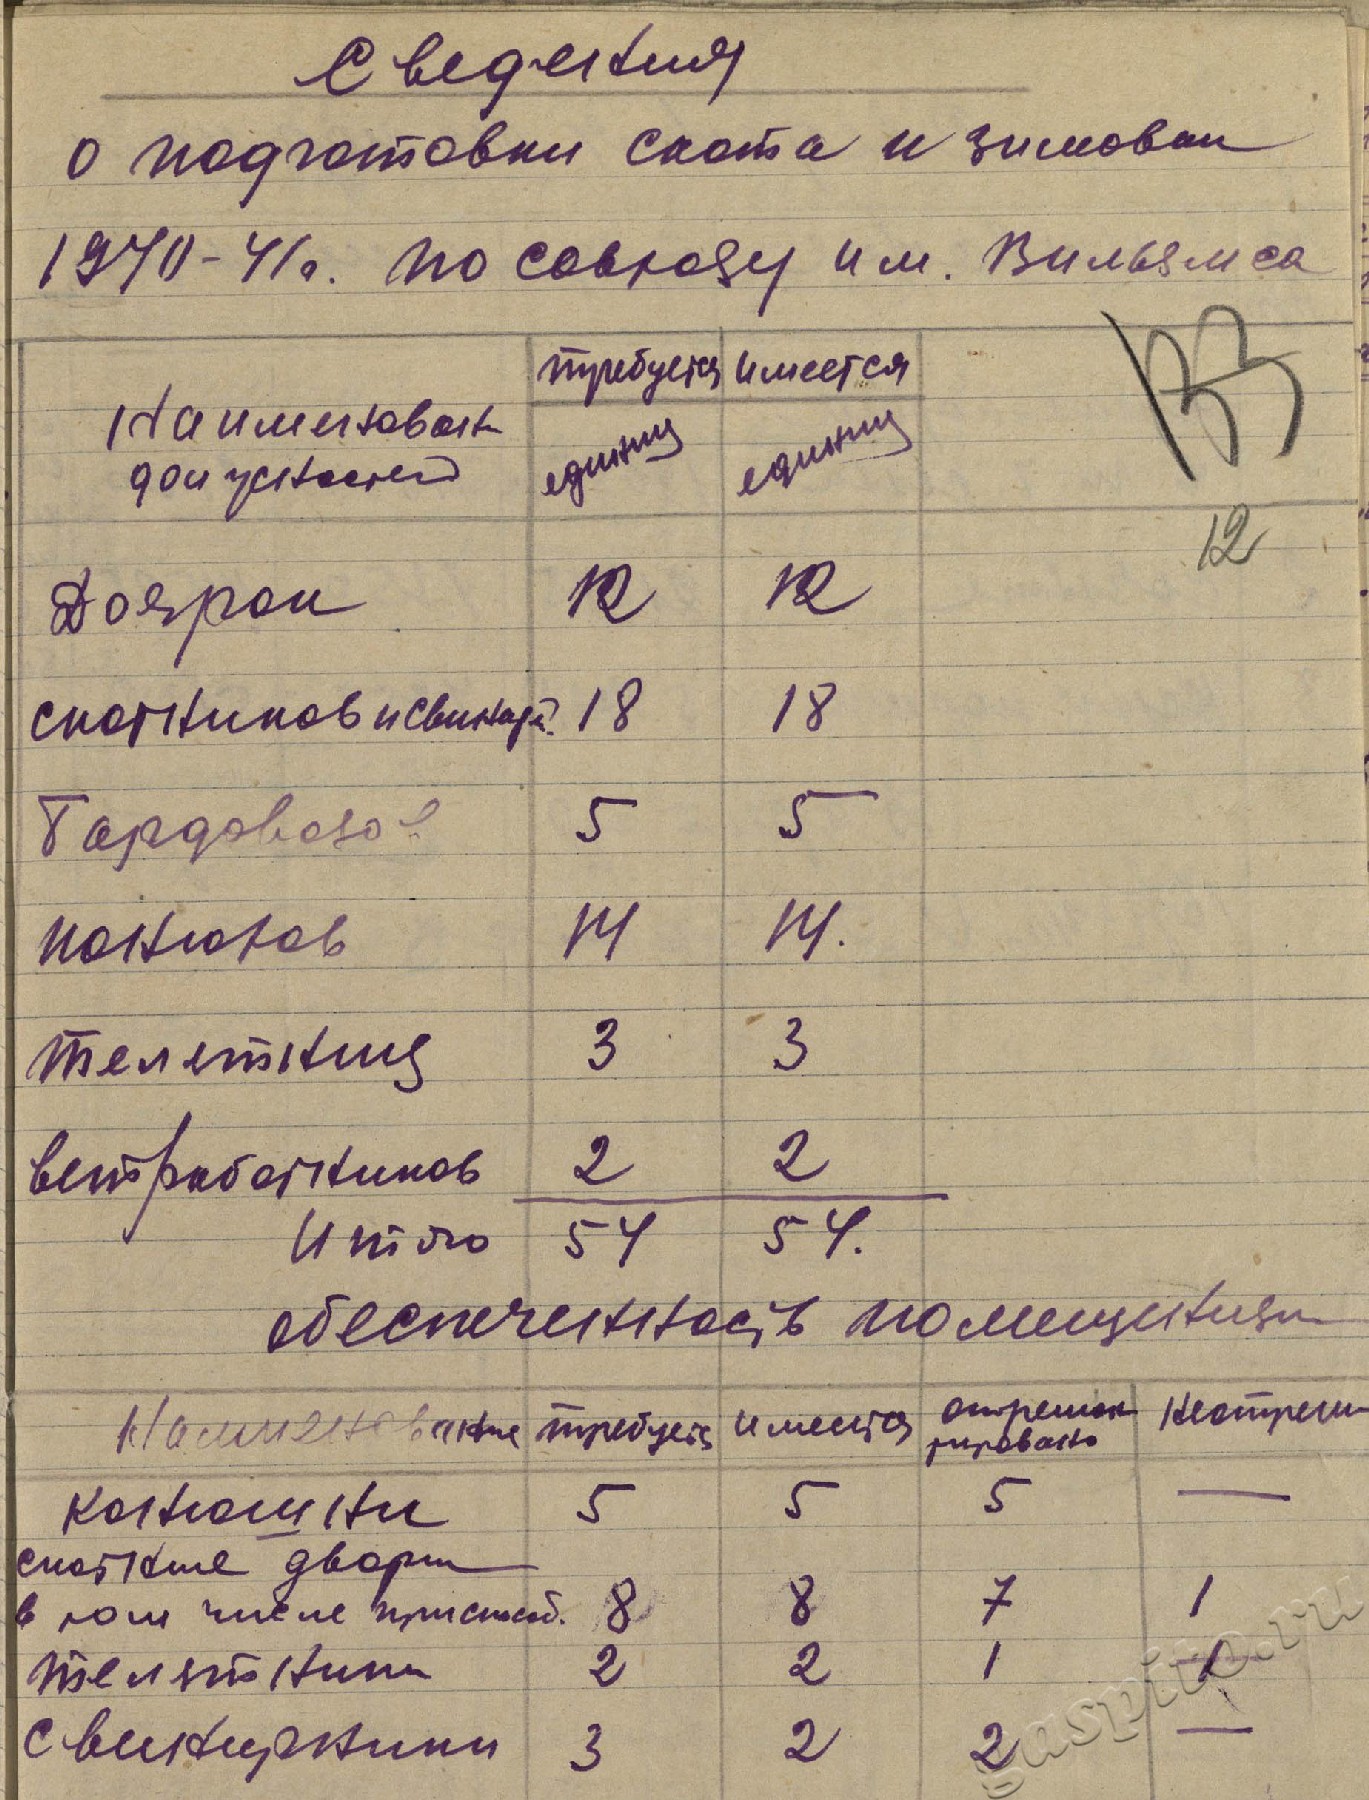 Сведения
о подготовки скота и зимовки
1940-41г. по совхозу им. Вильямса
требуется имеется
Наименован. должностей единиц единиц
133
12
Доярок 12 12
скотников и свинар. 18 18
Бардовозов 5 5
конюхов 14 14.
Телятниц 3 3
ветработников 2 2
Итого 54 54.
обеспеченность помещениям
Наименование требуется имеется отремон тировано неотремон
конюшни 5 5 5 —
скотные дворы
в том числе приспособ. 8 8 7 1
Телятники 2 2 1 1
Свинарники 3 2 2 —
gaspito.ru